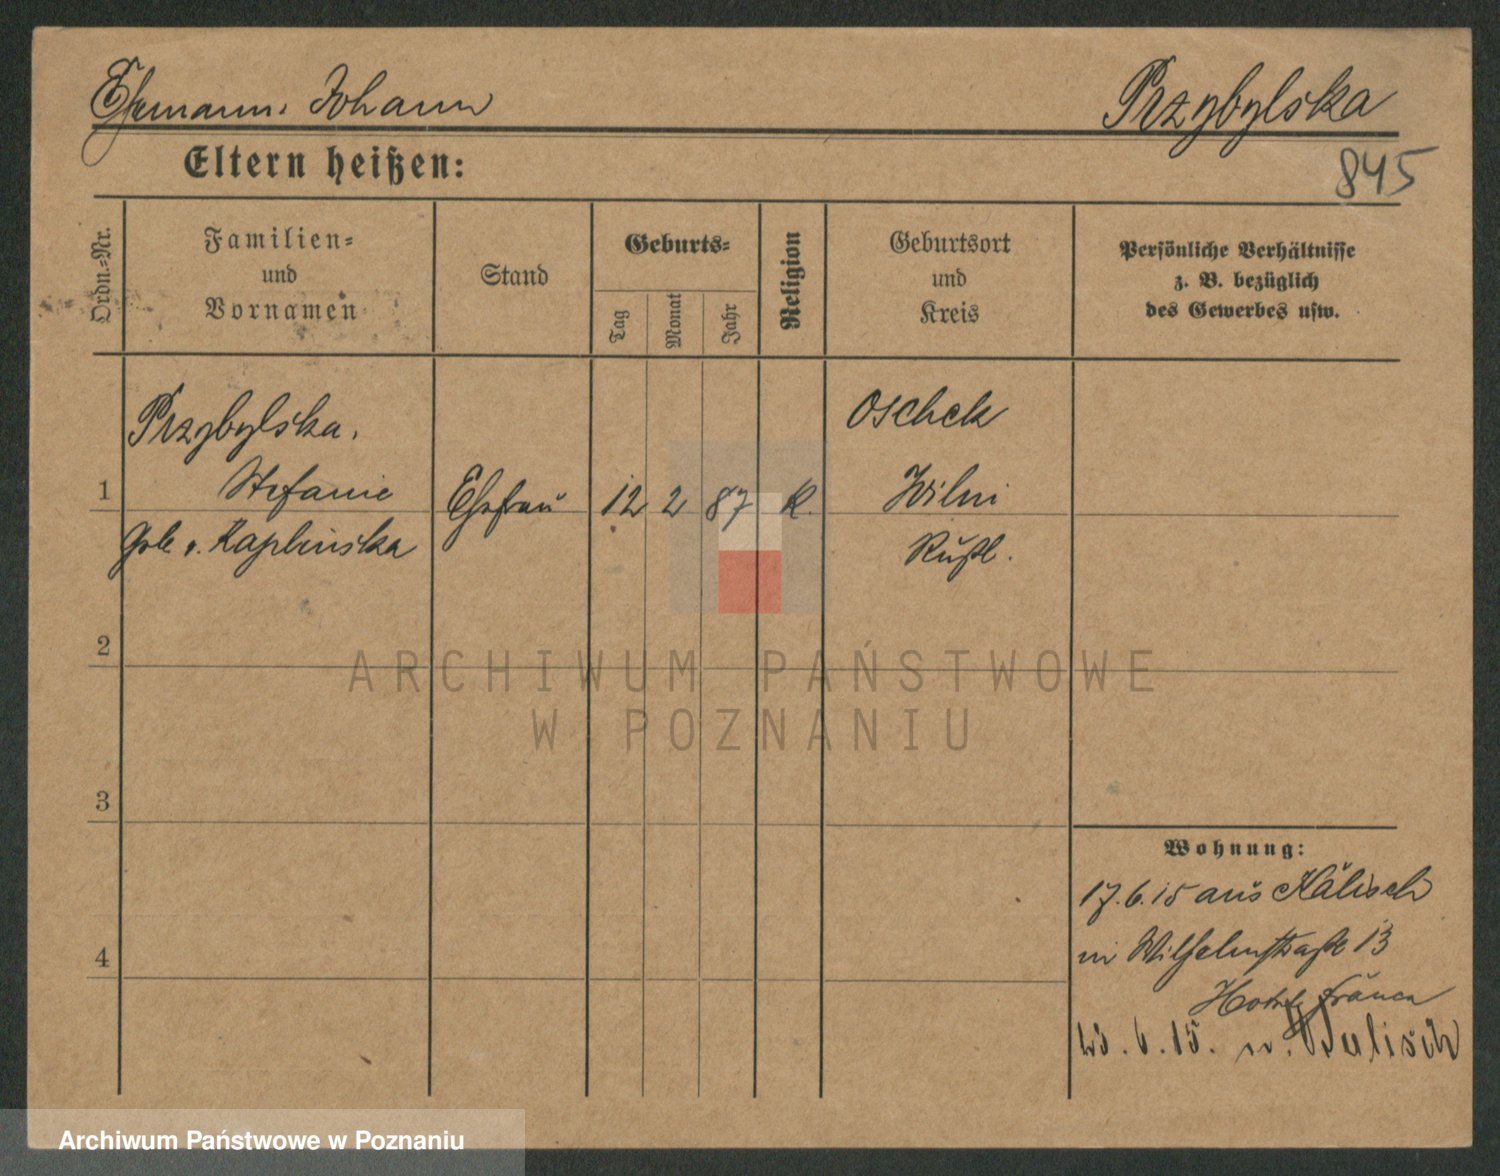 Ehemann. Johann
Przybylska
Eltern heißen:
845
Ordn.=Nr.
Familien=
und
Vornamen
Stand
Geburts=
Tag
Monat
Jahr
Religion
Geburtsort
und
Kreis
Persönliche Verhältnisse
z. B. bezüglich
des Gewerbes usw.
Przybylska,
Oschek
1
Stefanie
Ehefrau
12
2
87
K.
Wilni
geb. v. Kaplinska
Rußl.
2
ARCHIWUM PAŃSTWOWE
W POZNANIU
3
Wohnung:
17.6.15 aus Kalisch
4
in Wilhelmstraße 13
Hotel
6.15. n. Kalisch
Archiwum Państwowe w Poznaniu